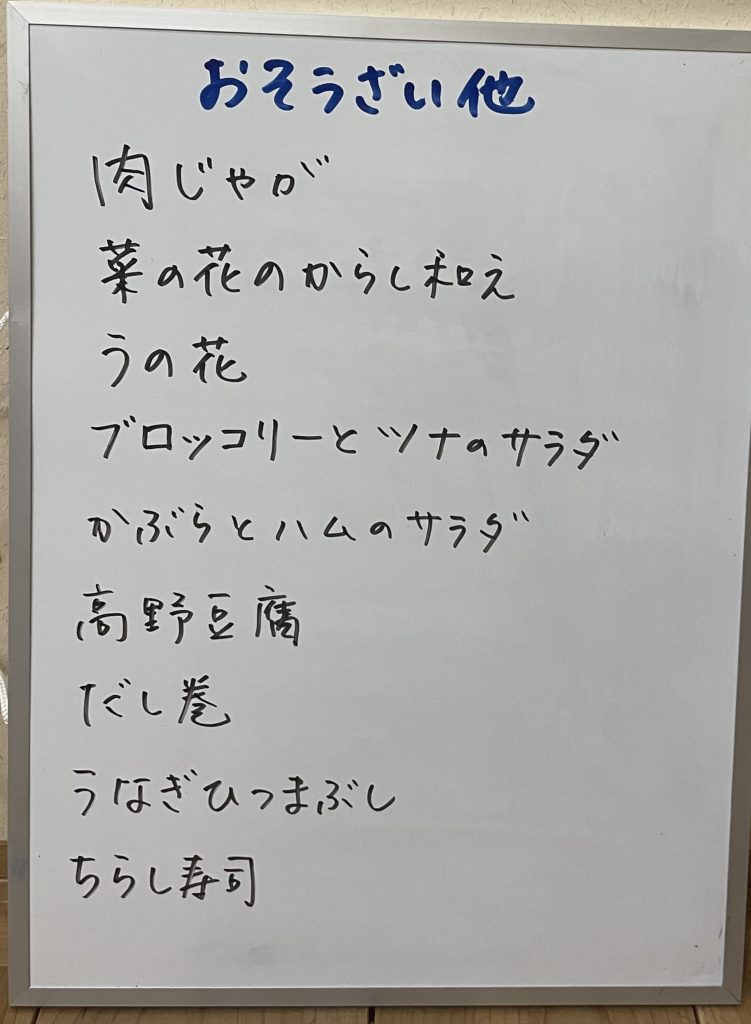 おそうざい他
肉じゃが
菜の花のからし和え
うの花
ブロッコリーとツナのサラダ
かぶらとハムのサラダ
高野豆腐
だし巻
うなぎひつまぶし
ちらし寿司